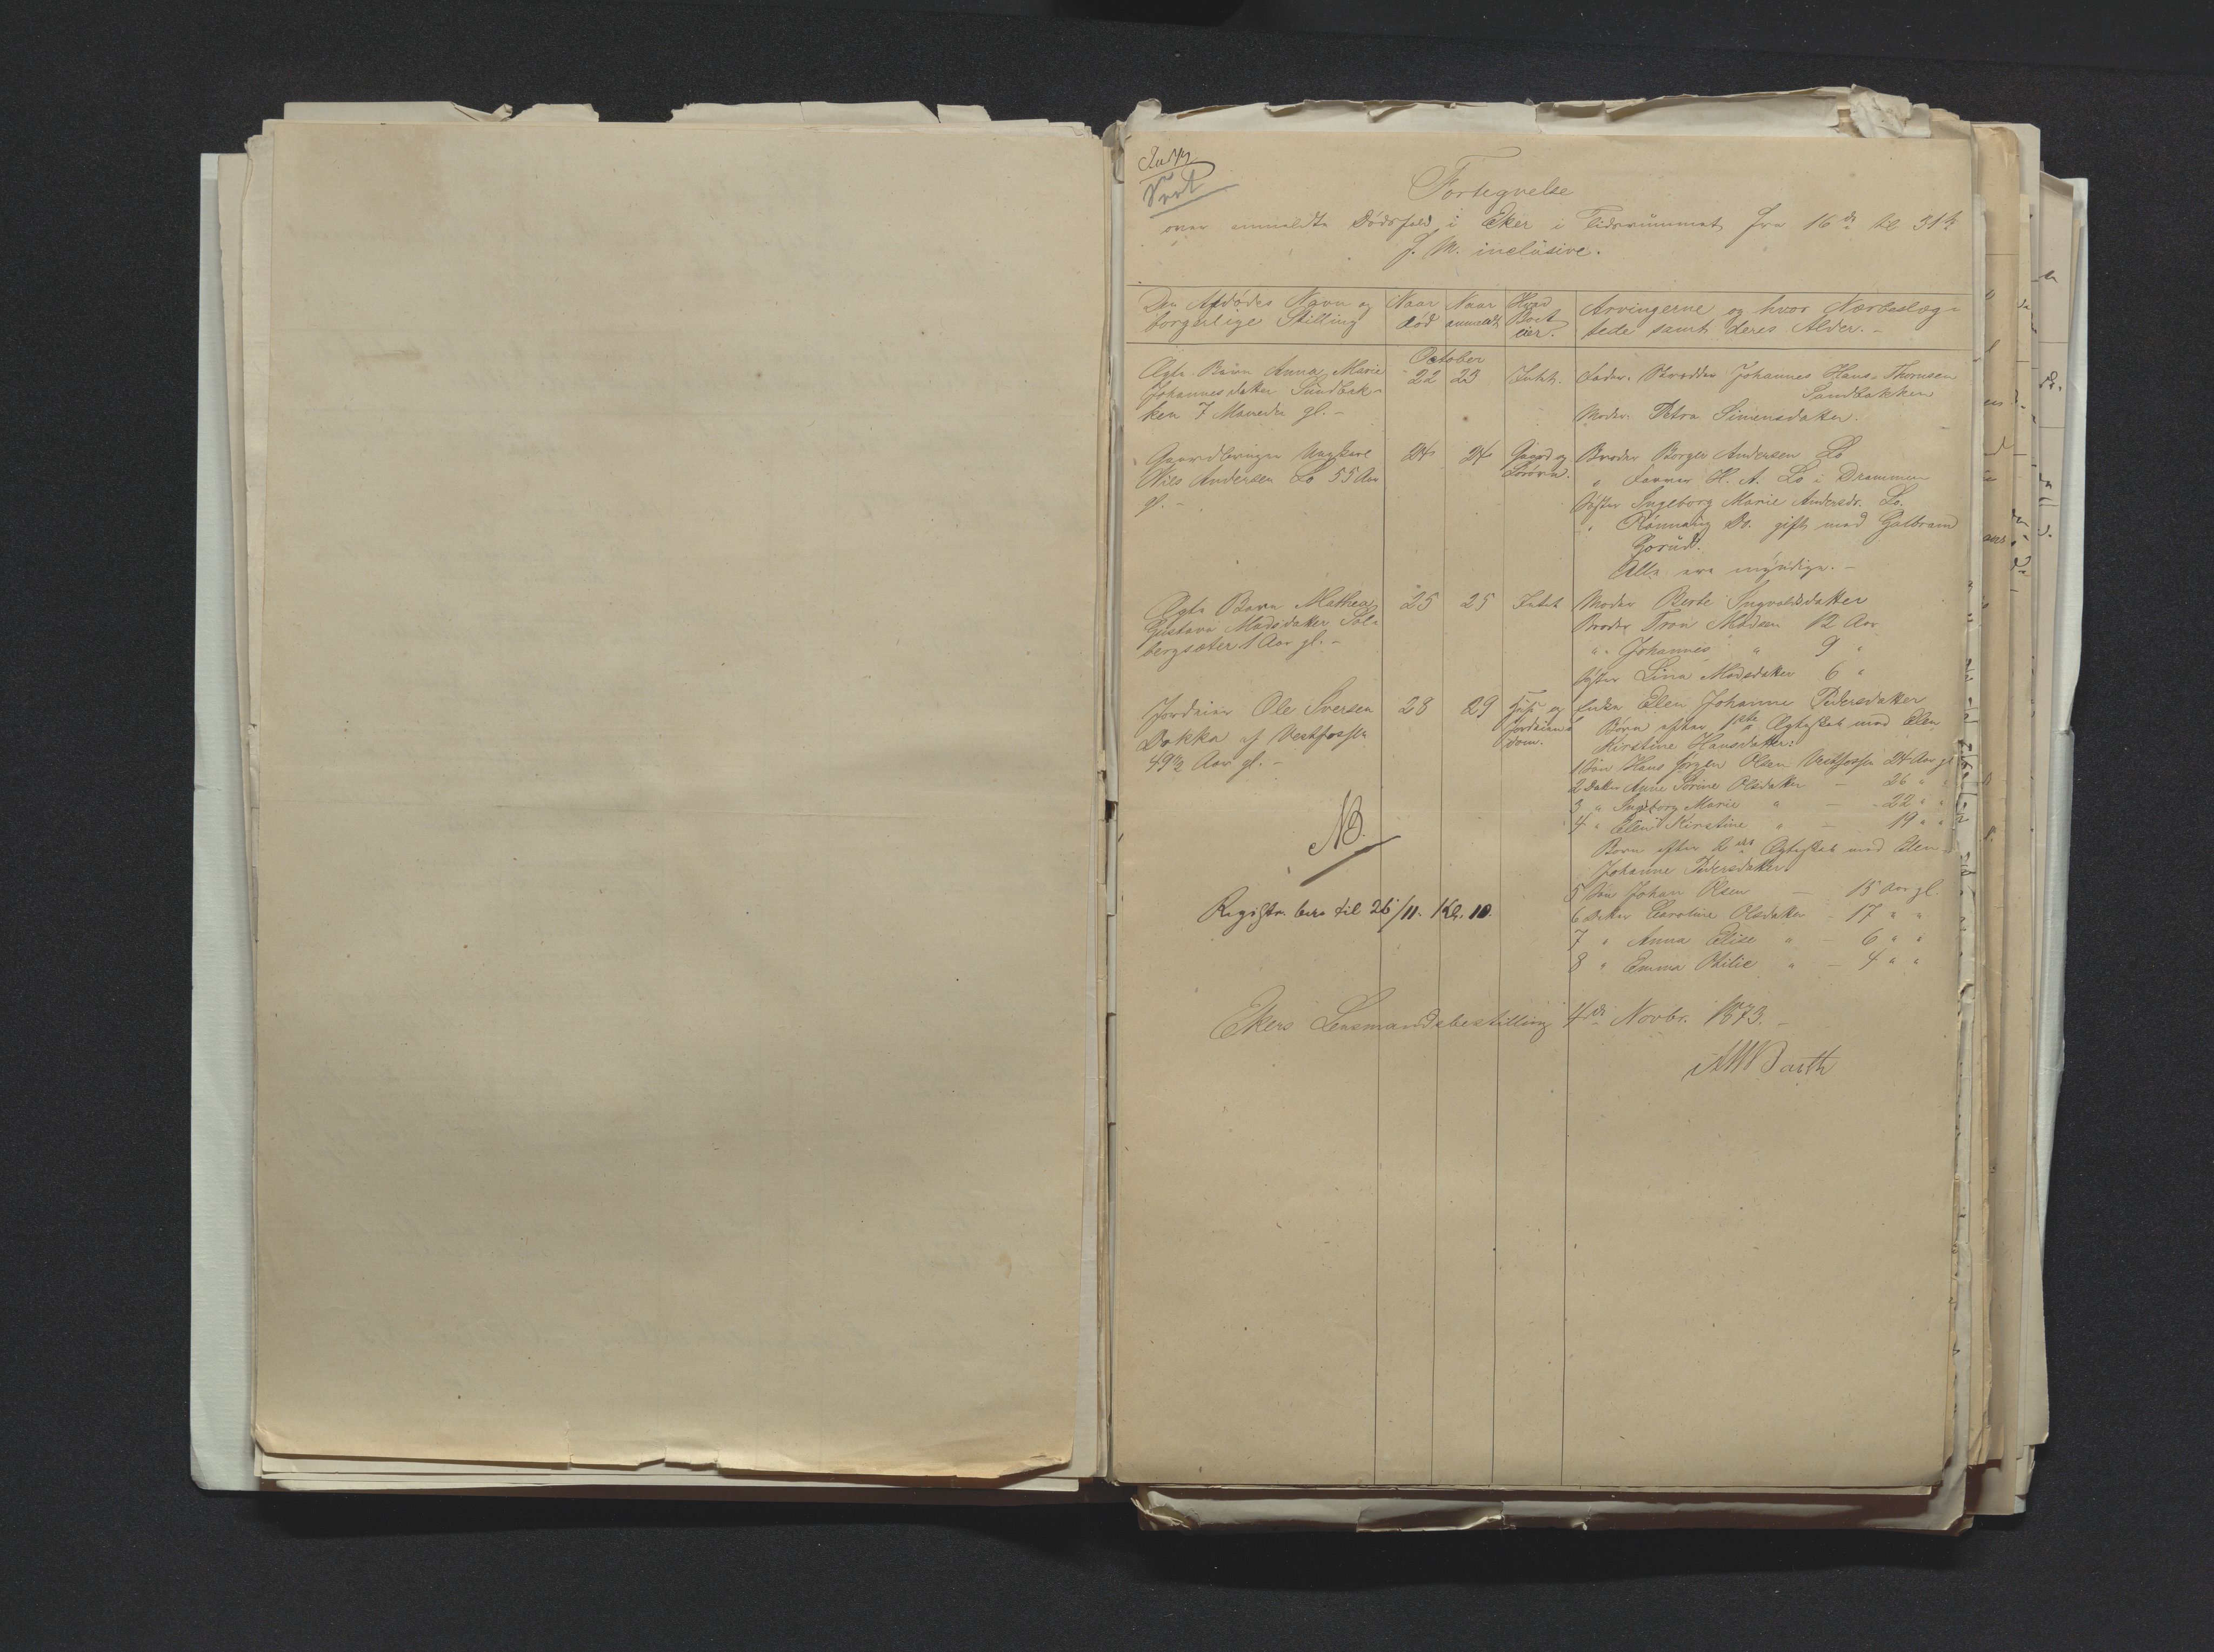 Fortegnelse
over anmeldte Dødsfald i Eker i Tidsrummet fra 16de til 31te
f. M. inclusive.
Den Afdødes Navn og borgerlige Stilling
Naar død
Naar anmeldt
Hvad Boet eier.
Arvingerne og hvor Nærbeslæg-
tede samt deres Alder. -
October
Ægte Barn Anna Marie 22 23 Intet. Fader. Johannes Hans. Thorusen
Johannesdatter Sandbak- Sandbakken
ken 7 Maneder gl. - Moder. Petra Simensdatter.
Gaardbruger Ungkarl 24 24 Gaard og Broder Borger Andersen Lo
Nils Andersen Lo 55 Aar Løsøre. " H. A. Lo i Drammen
gl. - Søster Ingeborg Marie Andersdr. Lo.
" Rønnaug Do. gift med Gulbrand
Gorud.
Alle ere myndige. -
Ægte Barn Mathea 25 25 Intet Moder Berte Ingvaldsdatter
Gustava Madsdatter Sol- Broder Tron Madsen 12 Aar
bergsæter 1 Aar gl. - " Johannes " 9 "
Søster Lina Madsdatter 6 "
Jordeier Ole Iversen 28 29 Huse og Enken Elen Johanne Pedersdatter
Dokka af Vestfossen Jordeien- Børn efter 1ste Ægteskab med Elen
49½ Aar gl. - dom. Kirstine Hansdatter:
1 Søn Hans Jørgen Olsen Vestfossen 24 Aar gl
2 Datter Anne Sørine Olsdatter - 26 " "
3 " Ingeborg Marie " - 22 " "
4 " Elen Kirstine " - 19 " "
NB.
Børn efter 2det Ægteskab med Elen
Johanne Pedersdatter.
5 Søn Johan Olsen - 15 Aar gl.
Registr. ber. til 26/11. Kl. 10.
6 Datter Caroline Olsdatter - 17 " "
7 " Anna Elise " - 6 " "
8 " Emma Otilie " - 4 " "
Ekers Lensmandsbestilling 4de Novbr. 1873. -
Barth